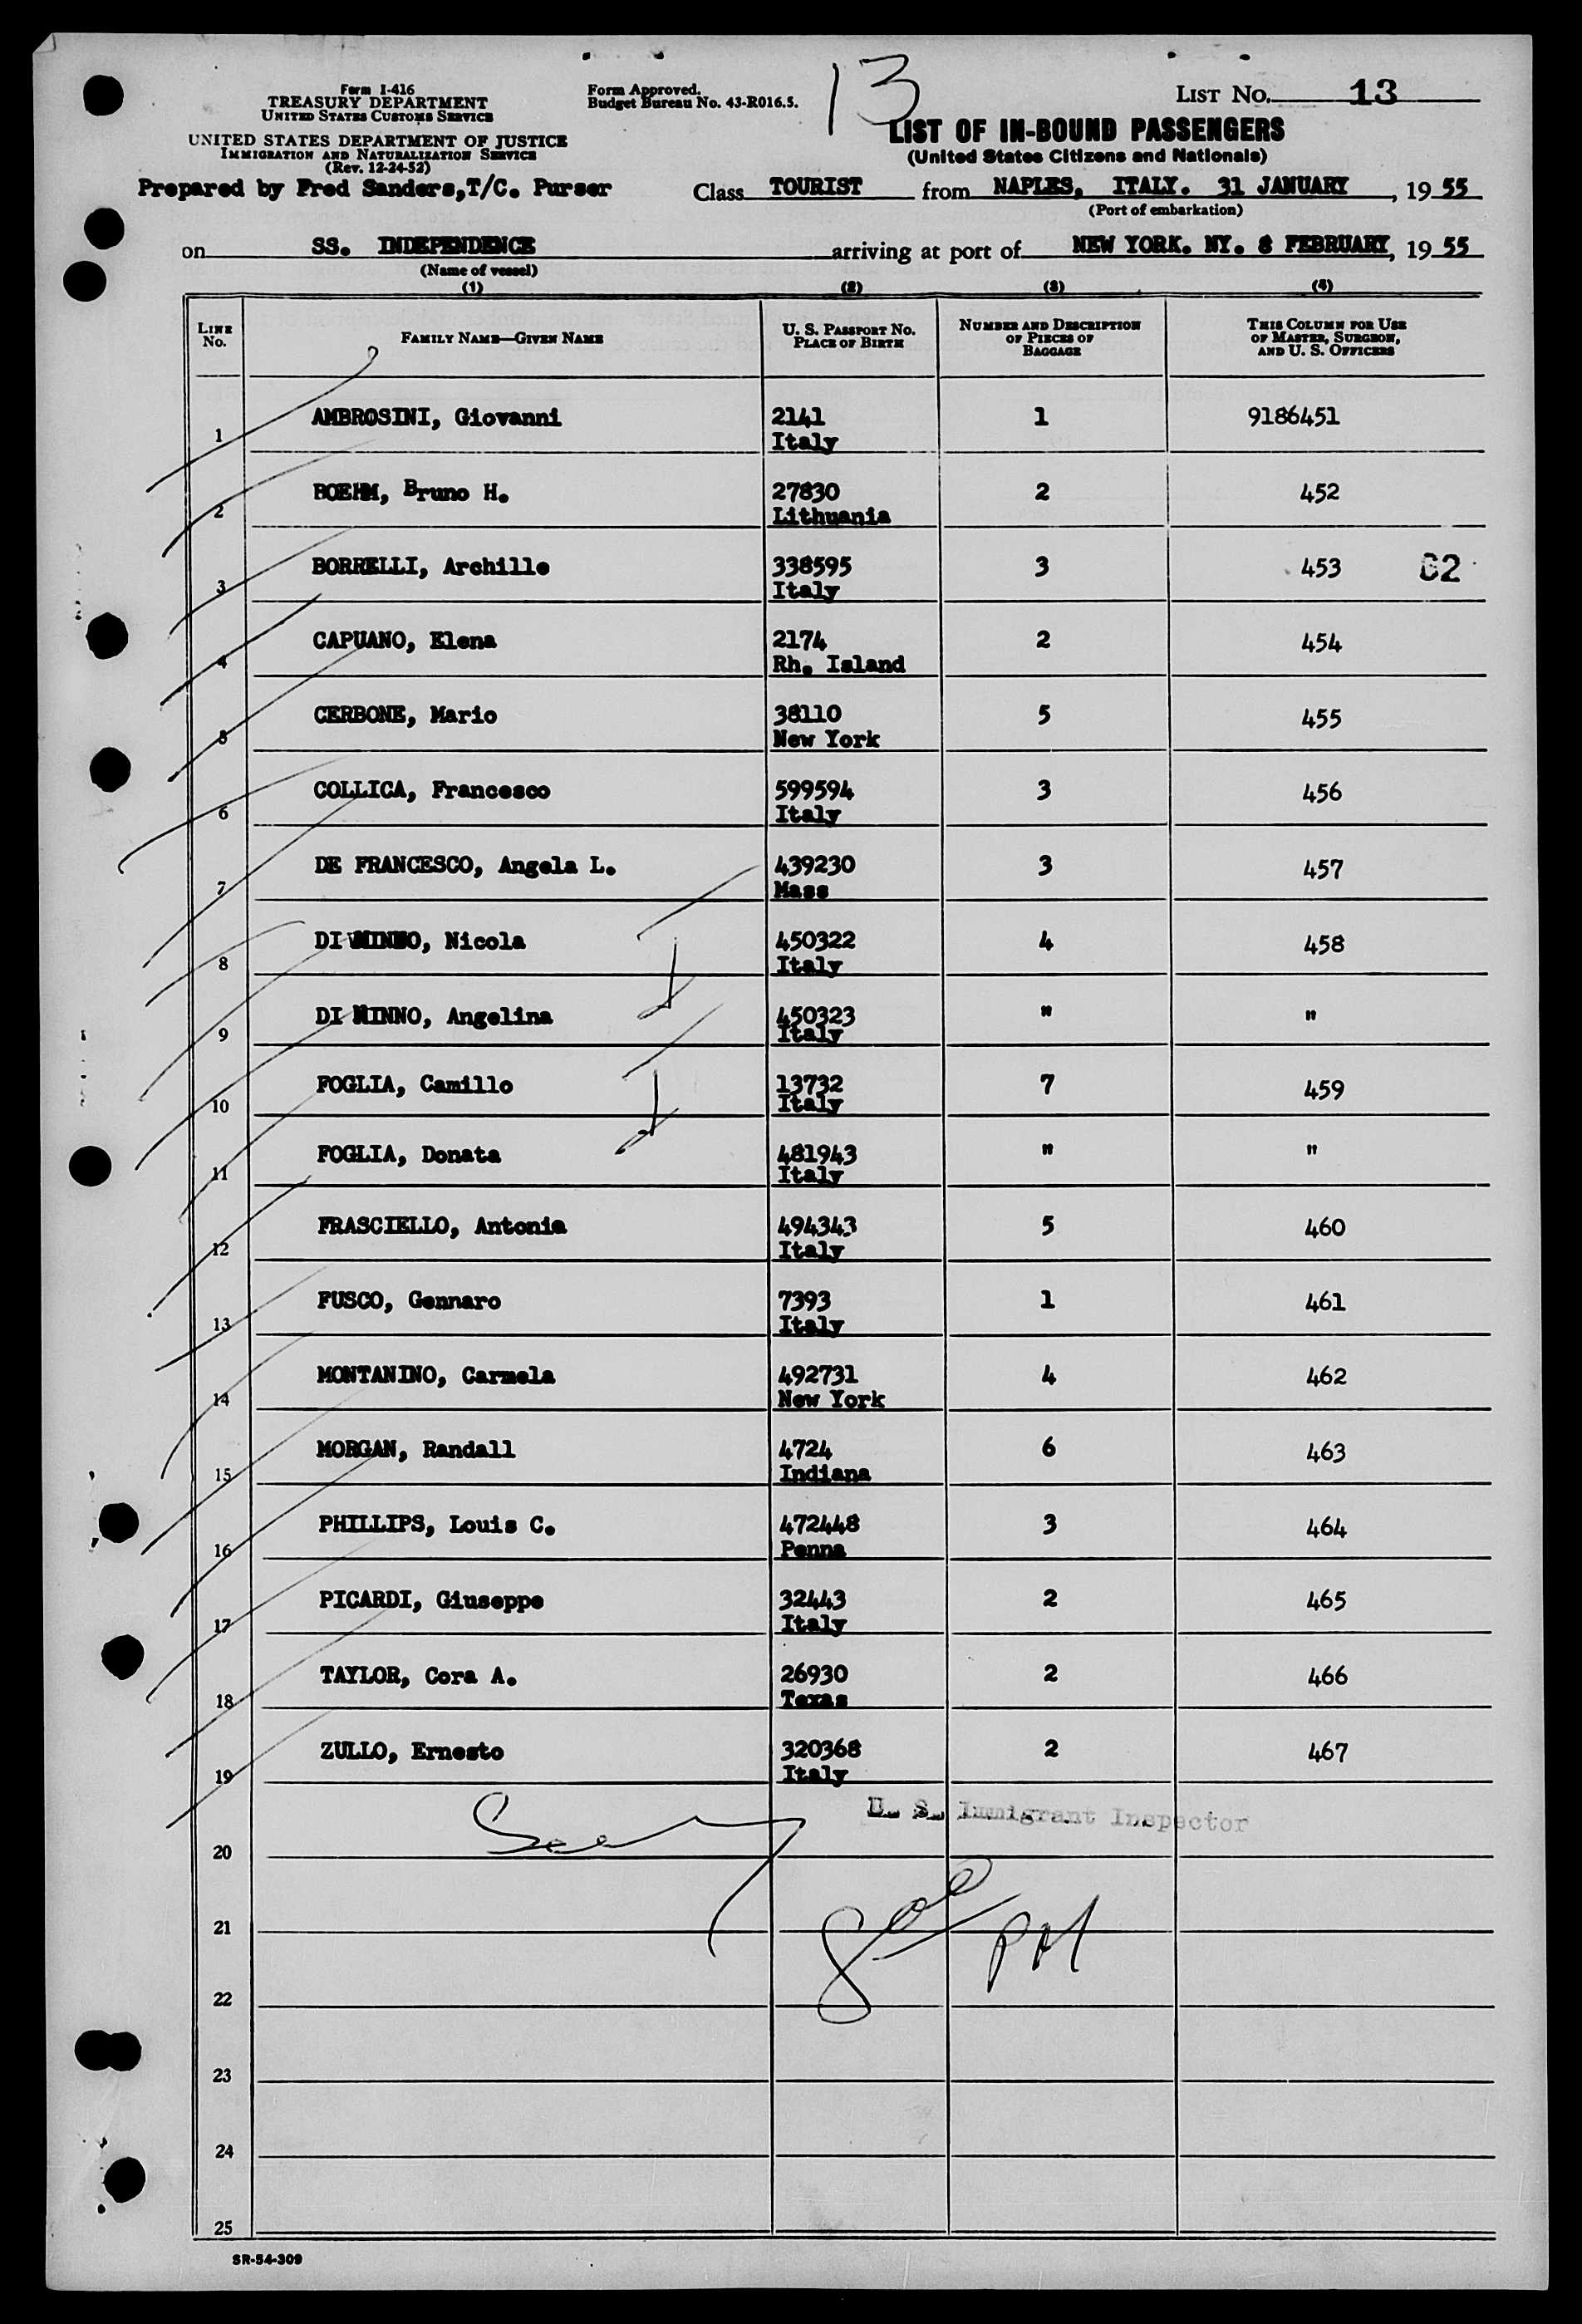 13
Form 1-416
TREASURY DEPARTMENT
UNITED STATES CUSTOMS SERVICE
UNITED STATES DEPARTMENT OF JUSTICE
IMMIGRATION AND NATURALIZATION SERVICE
(Rev. 12-24-52)
Form Approved.
Budget Bureau No. 43-R016.5.
LIST NO. 13
LIST OF IN-BOUND PASSENGERS
(United States Citizens and Nationals)
Prepared by Fred Sanders,T/C. Purser
Class TOURIST from NAPLES, ITALY. 31 JANUARY, 19 55
(Port of embarkation)
on SS. INDEPENDENCE arriving at port of NEW YORK. NY. 8 FEBRUARY, 19 55
(Name of vessel)
(1) (2) (3) (4)
LINE No. FAMILY NAME—GIVEN NAME U. S. PASSPORT NO. PLACE OF BIRTH NUMBER AND DESCRIPTION OF PIECES OF BAGGAGE THIS COLUMN FOR USE OF MASTER, SURGEON, AND U. S. OFFICERS
1 AMBROSINI, Giovanni 2141 1 9186451
Italy
2 BOEHM, Bruno H. 27830 2 452
Lithuania
3 BORRELLI, Archille 338595 3 453 62
Italy
4 CAPUANO, Elena 2174 2 454
Rh. Island
5 CERBONE, Mario 38110 5 455
New York
6 COLLICA, Francesco 599594 3 456
Italy
7 DE FRANCESCO, Angela L. 439230 3 457
Mass
8 DI MINNO, Nicola 450322 4 458
Italy
9 DI MINNO, Angelina 450323 " "
Italy
10 FOGLIA, Camillo 13732 7 459
Italy
11 FOGLIA, Donata 481943 " "
Italy
12 FRASCIELLO, Antonia 494343 5 460
Italy
13 FUSCO, Gennaro 7393 1 461
Italy
14 MONTANINO, Carmela 492731 4 462
New York
15 MORGAN, Randall 4724 6 463
Indiana
16 PHILLIPS, Louis C. 472448 3 464
Penna
17 PICARDI, Giuseppe 32443 2 465
Italy
18 TAYLOR, Cora A. 26930 2 466
Texas
19 ZULLO, Ernesto 320368 2 467
Italy
U. S. Immigrant Inspector
20
21
22
23
24
25
SR-54-309